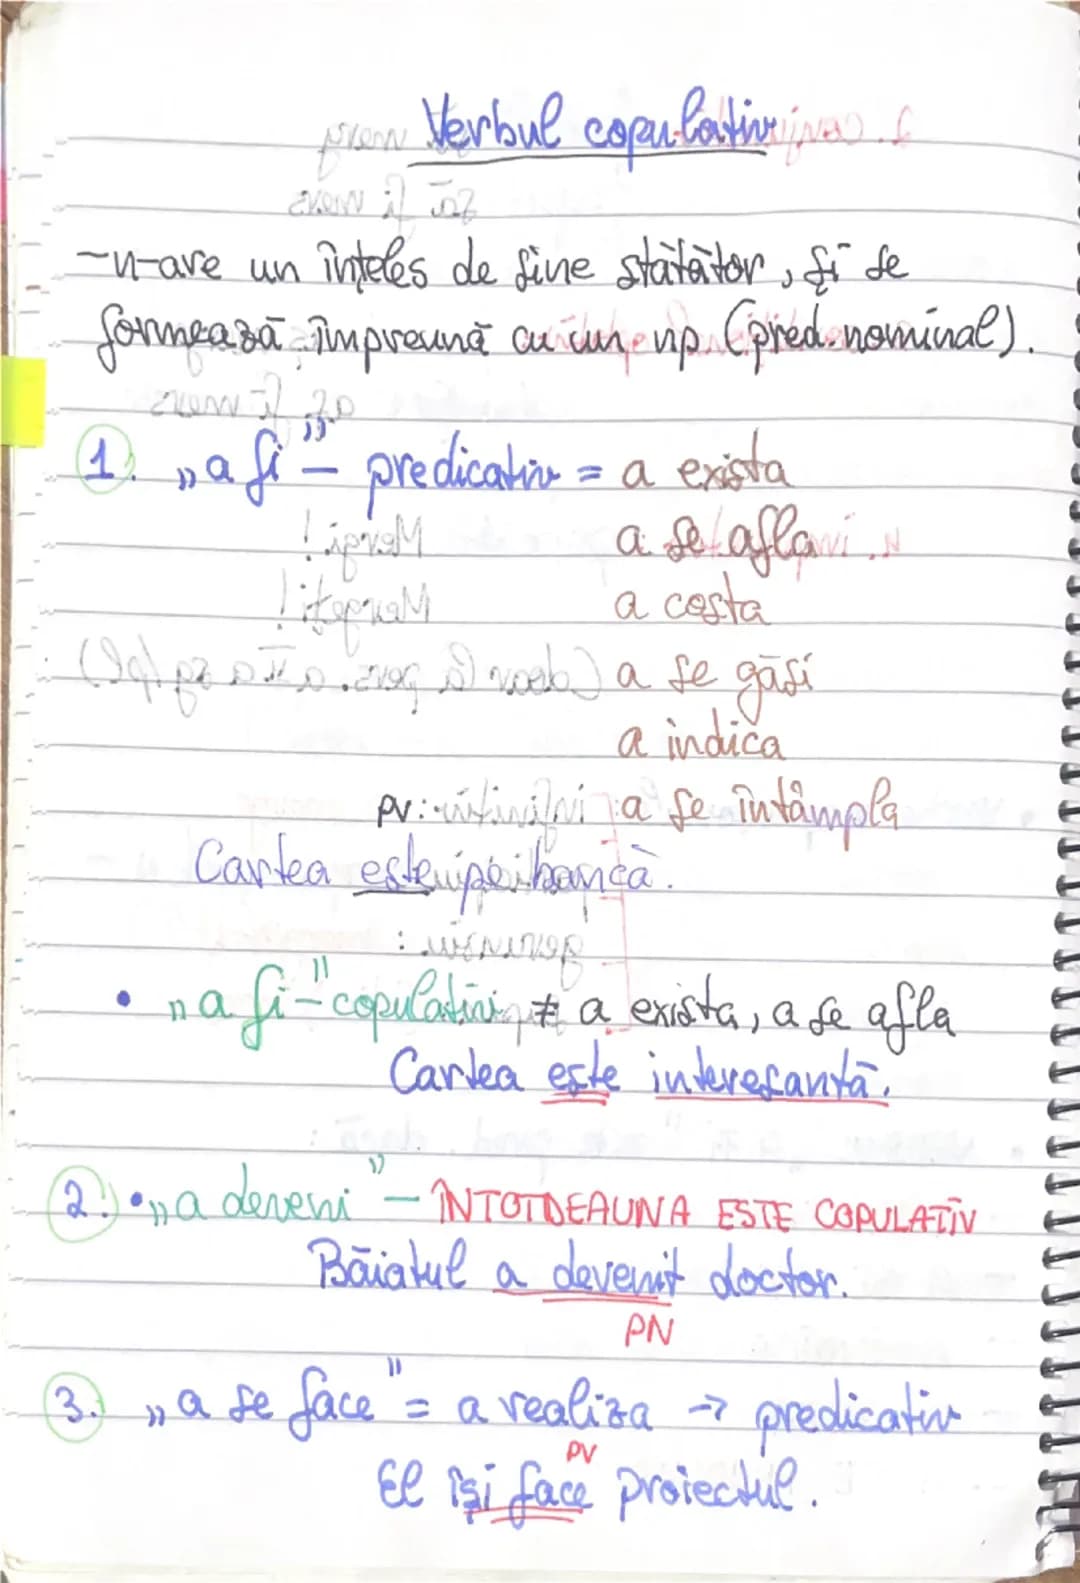 Verbul copulativ
-n-are un înțeles de sine stătător, și se
formează împreună cu un np (pred. nominal).
1. „a fi" - predicativ = a exista
a se afla
a costa
a se găsi
a indica
pv: a se întâmpla
Cartea este pe bancă.
• „a fi"-copulativ ≠ a exista, a se afla
Cartea este interesantă.
2. • „a deveni" - ÎNTOTDEAUNA ESTE COPULATIV
Băiatul a devenit doctor.
PN
3. „a se face" = a realiza → predicativ
PV
El își face proiectul.